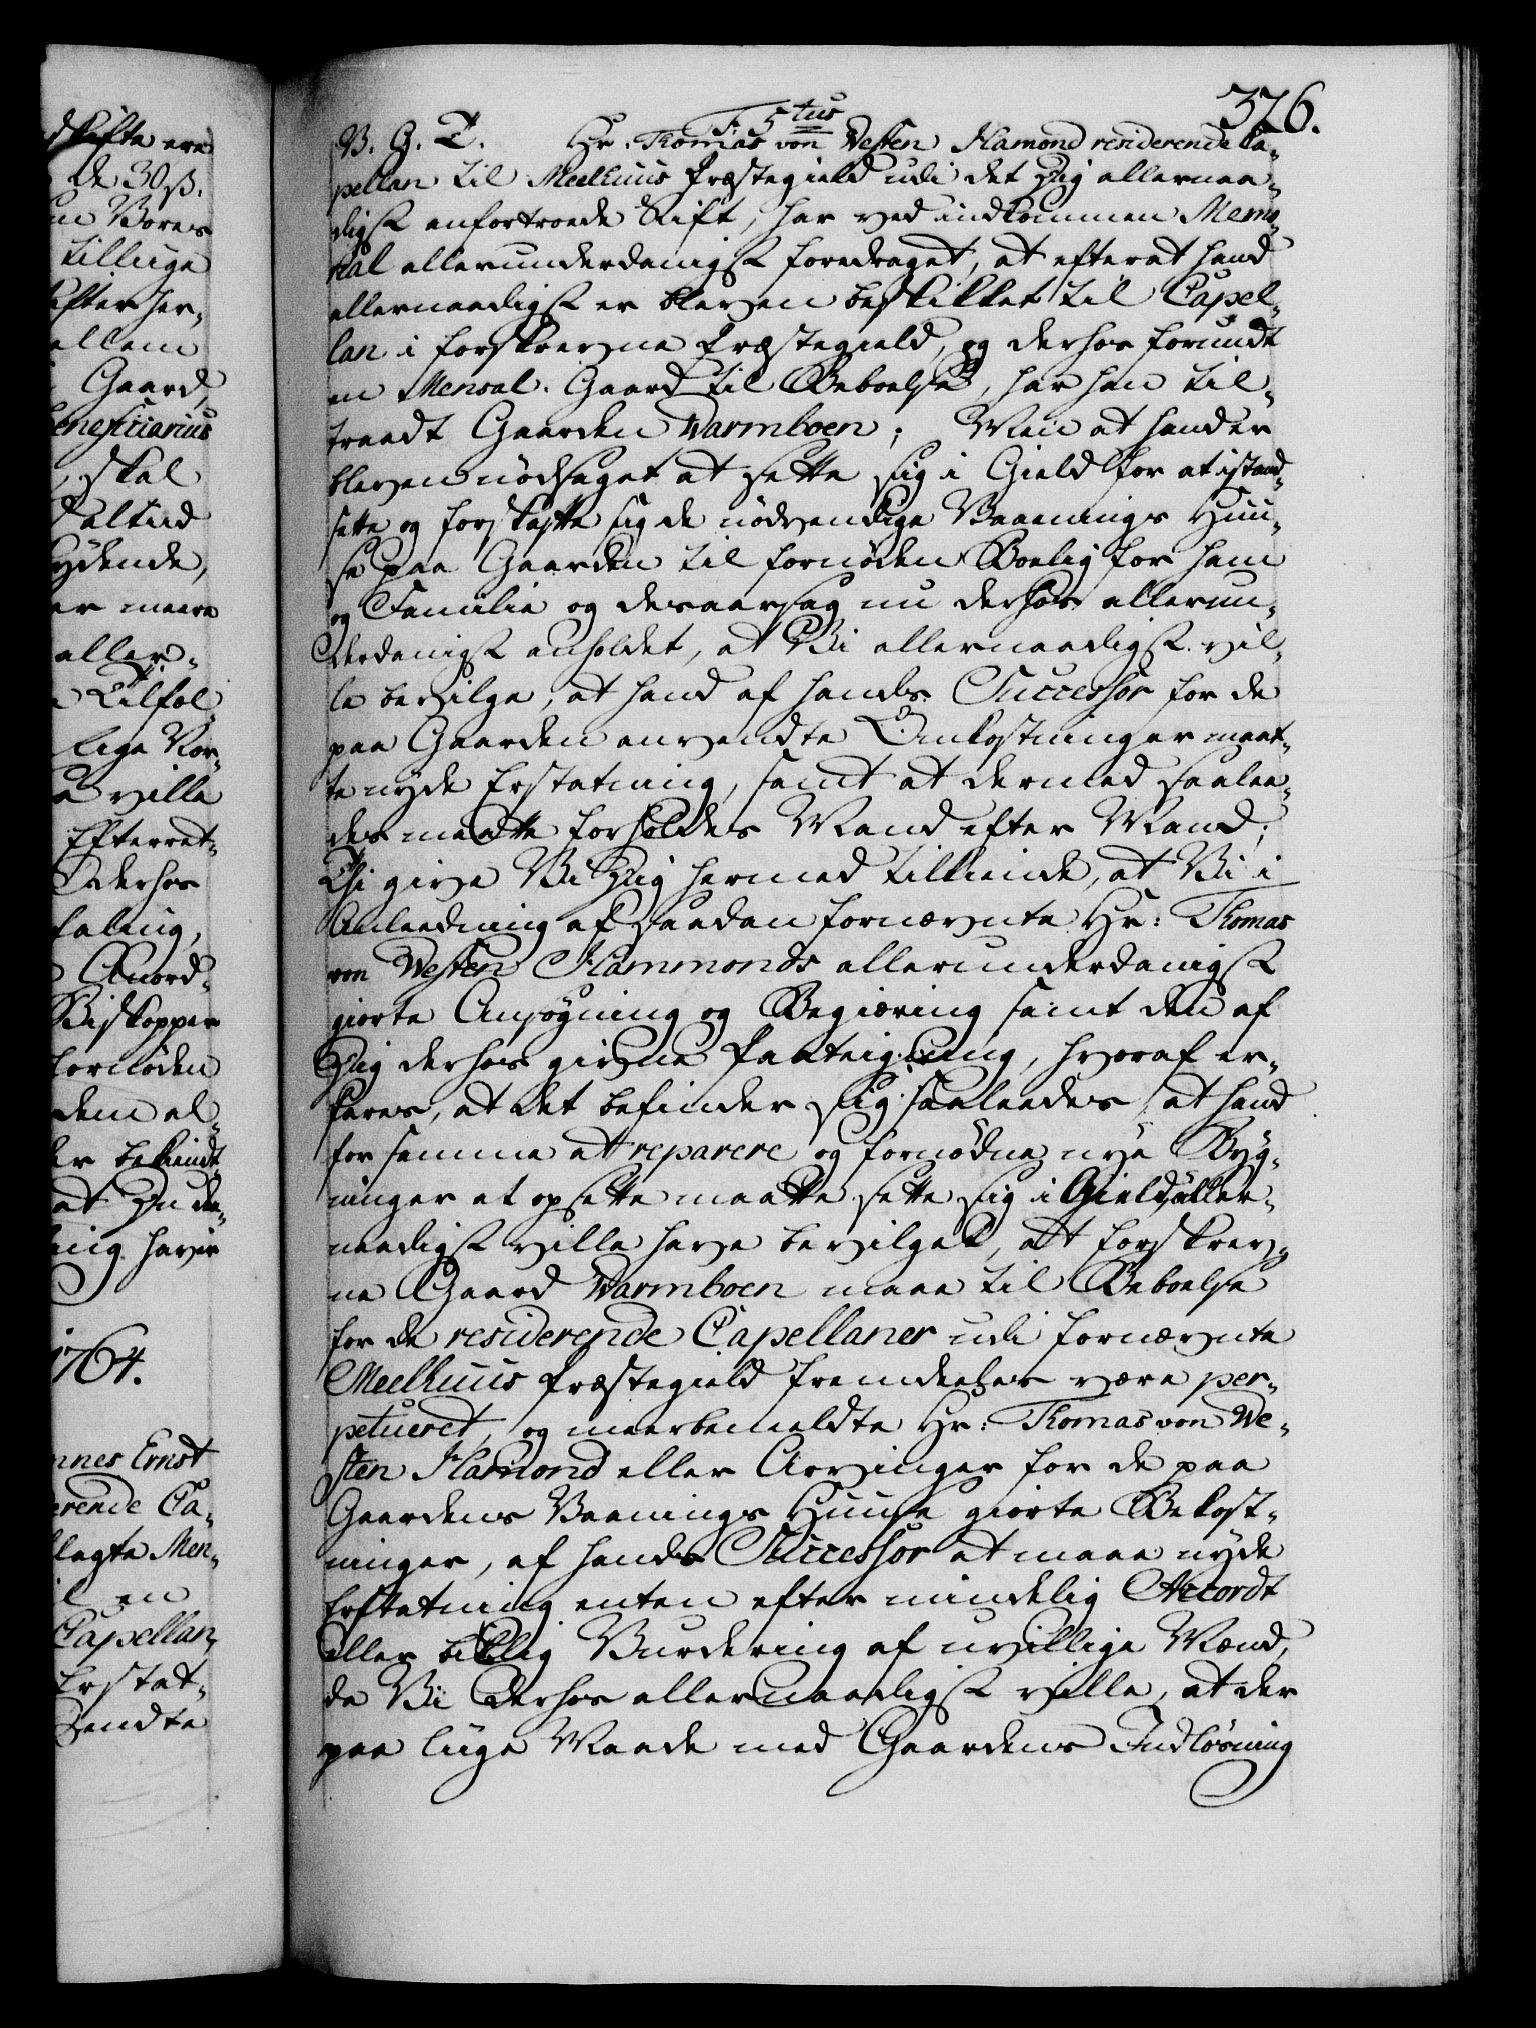 376.
F. 5tus
V. G. T. Hr. Thomas von Westen Hamond residerende Ca-
pellan til Meelhuus Præstegield udi det Dig allernaa-
digst anfortroede Stift, har ved indkommen Memo-
rial allerunderdanigst foredraget, at efterat hand
allernaadigst er bleven beskikket til Capel-
lan i forskrevne Præstegield, og derhos forundt
en Mensal-Gaard til Beboelse, har han til-
traadt Gaarden Varmboen; Men at hand er
bleven nødsaget at sette sig i Gield for at istand-
sette og forskaffe sig de nødvendige Vaanings Huu-
se paa Gaarden til fornøden Boelig for ham
og Familie og desaarsag nu derhos allerun-
derdanigst anholdet, at Vi allernaadigst vil-
le bevilge, at hand af hands Successor for de
paa Gaarden anvendte Omkostninger maat-
te nyde Erstatning, samt at dermed saalee-
des maatte forholdes Mand efter Mand;
Thi give Vi Dig hermed tilkiende, at Vi i
Anleedning af saadan fornævnte Hr: Thomas
von Westen Hammonds allerunderdanigst
giorte Ansøgning og Begiæring samt den af
Dig derhos givne Paateigning, hvoraf er-
fares, at det befinder sig saaleedes, at hand
for samme at reparere og fornødne nye Byg-
ninger at opsette maatte sette sig i Gield, aller-
naadigst ville have bevilget, at forskrev-
ne Gaard Varmboen maae til Beboelse
for de residerende Capellaner udi fornævnte
Meelhuus Præstegield fremdeeles være per-
petueret, og meerbemeldte Hr: Thomas von We-
sten Hamond eller Arvinger for de paa
Gaardens Vaanings Huuse giorte Bekost-
ninger, af hands Successor at maae nyde
Erstatning enten efter mindelig Accordt
eller billig Vurdering af uvillige Mænd,
da Vi derhos allernaadigst ville, at der
paa liige Maade med Gaardens Indløsning
dskifte ere
de 30 ß.
Vores
tilliige
efter her-
ellem
Gaard,
eneficiarius
skal
altiid
ydende,
er meere
aller-
Tilføl-
lige Vor-
ville
Efterret-
derhos
faling,
Anord-
Biskopper
fornøden
dem al-
er bekiendt
at Du
ing haver
1764.
nnes Ernst
erende Ca-
lagte Men-
l en
Capellan,
Erstat-
vendte